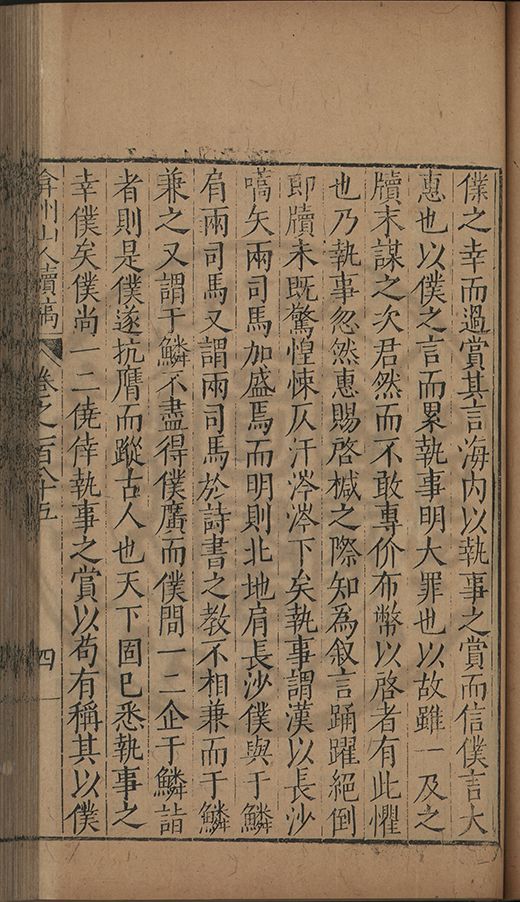 僕之幸而過賞其言海内以執事之賞而信僕言大
惠也以僕之言而累執事明大罪也以故雖一及之
牘末謀之次君然而不敢專价布幣以啓者有此懼
也乃執事忽然惠賜啓椷之際知爲叙言踊躍絕倒
即牘未既驚惶悚仄汗涔涔下矣執事謂漢以長沙
嚆矢兩司馬加盛焉而明則北地肩長沙僕與于鱗
肩兩司馬又謂兩司馬於詩書之教不相兼而于鱗
兼之又謂于鱗不盡得僕廣而僕間一二企于鱗詣
者則是僕遂抗膺而蹤古人也天下固已悉執事之
幸僕矣僕尚一二僥倖執事之賞以苟有稱其以僕
弇州山人續稿 卷之一百八十五 四